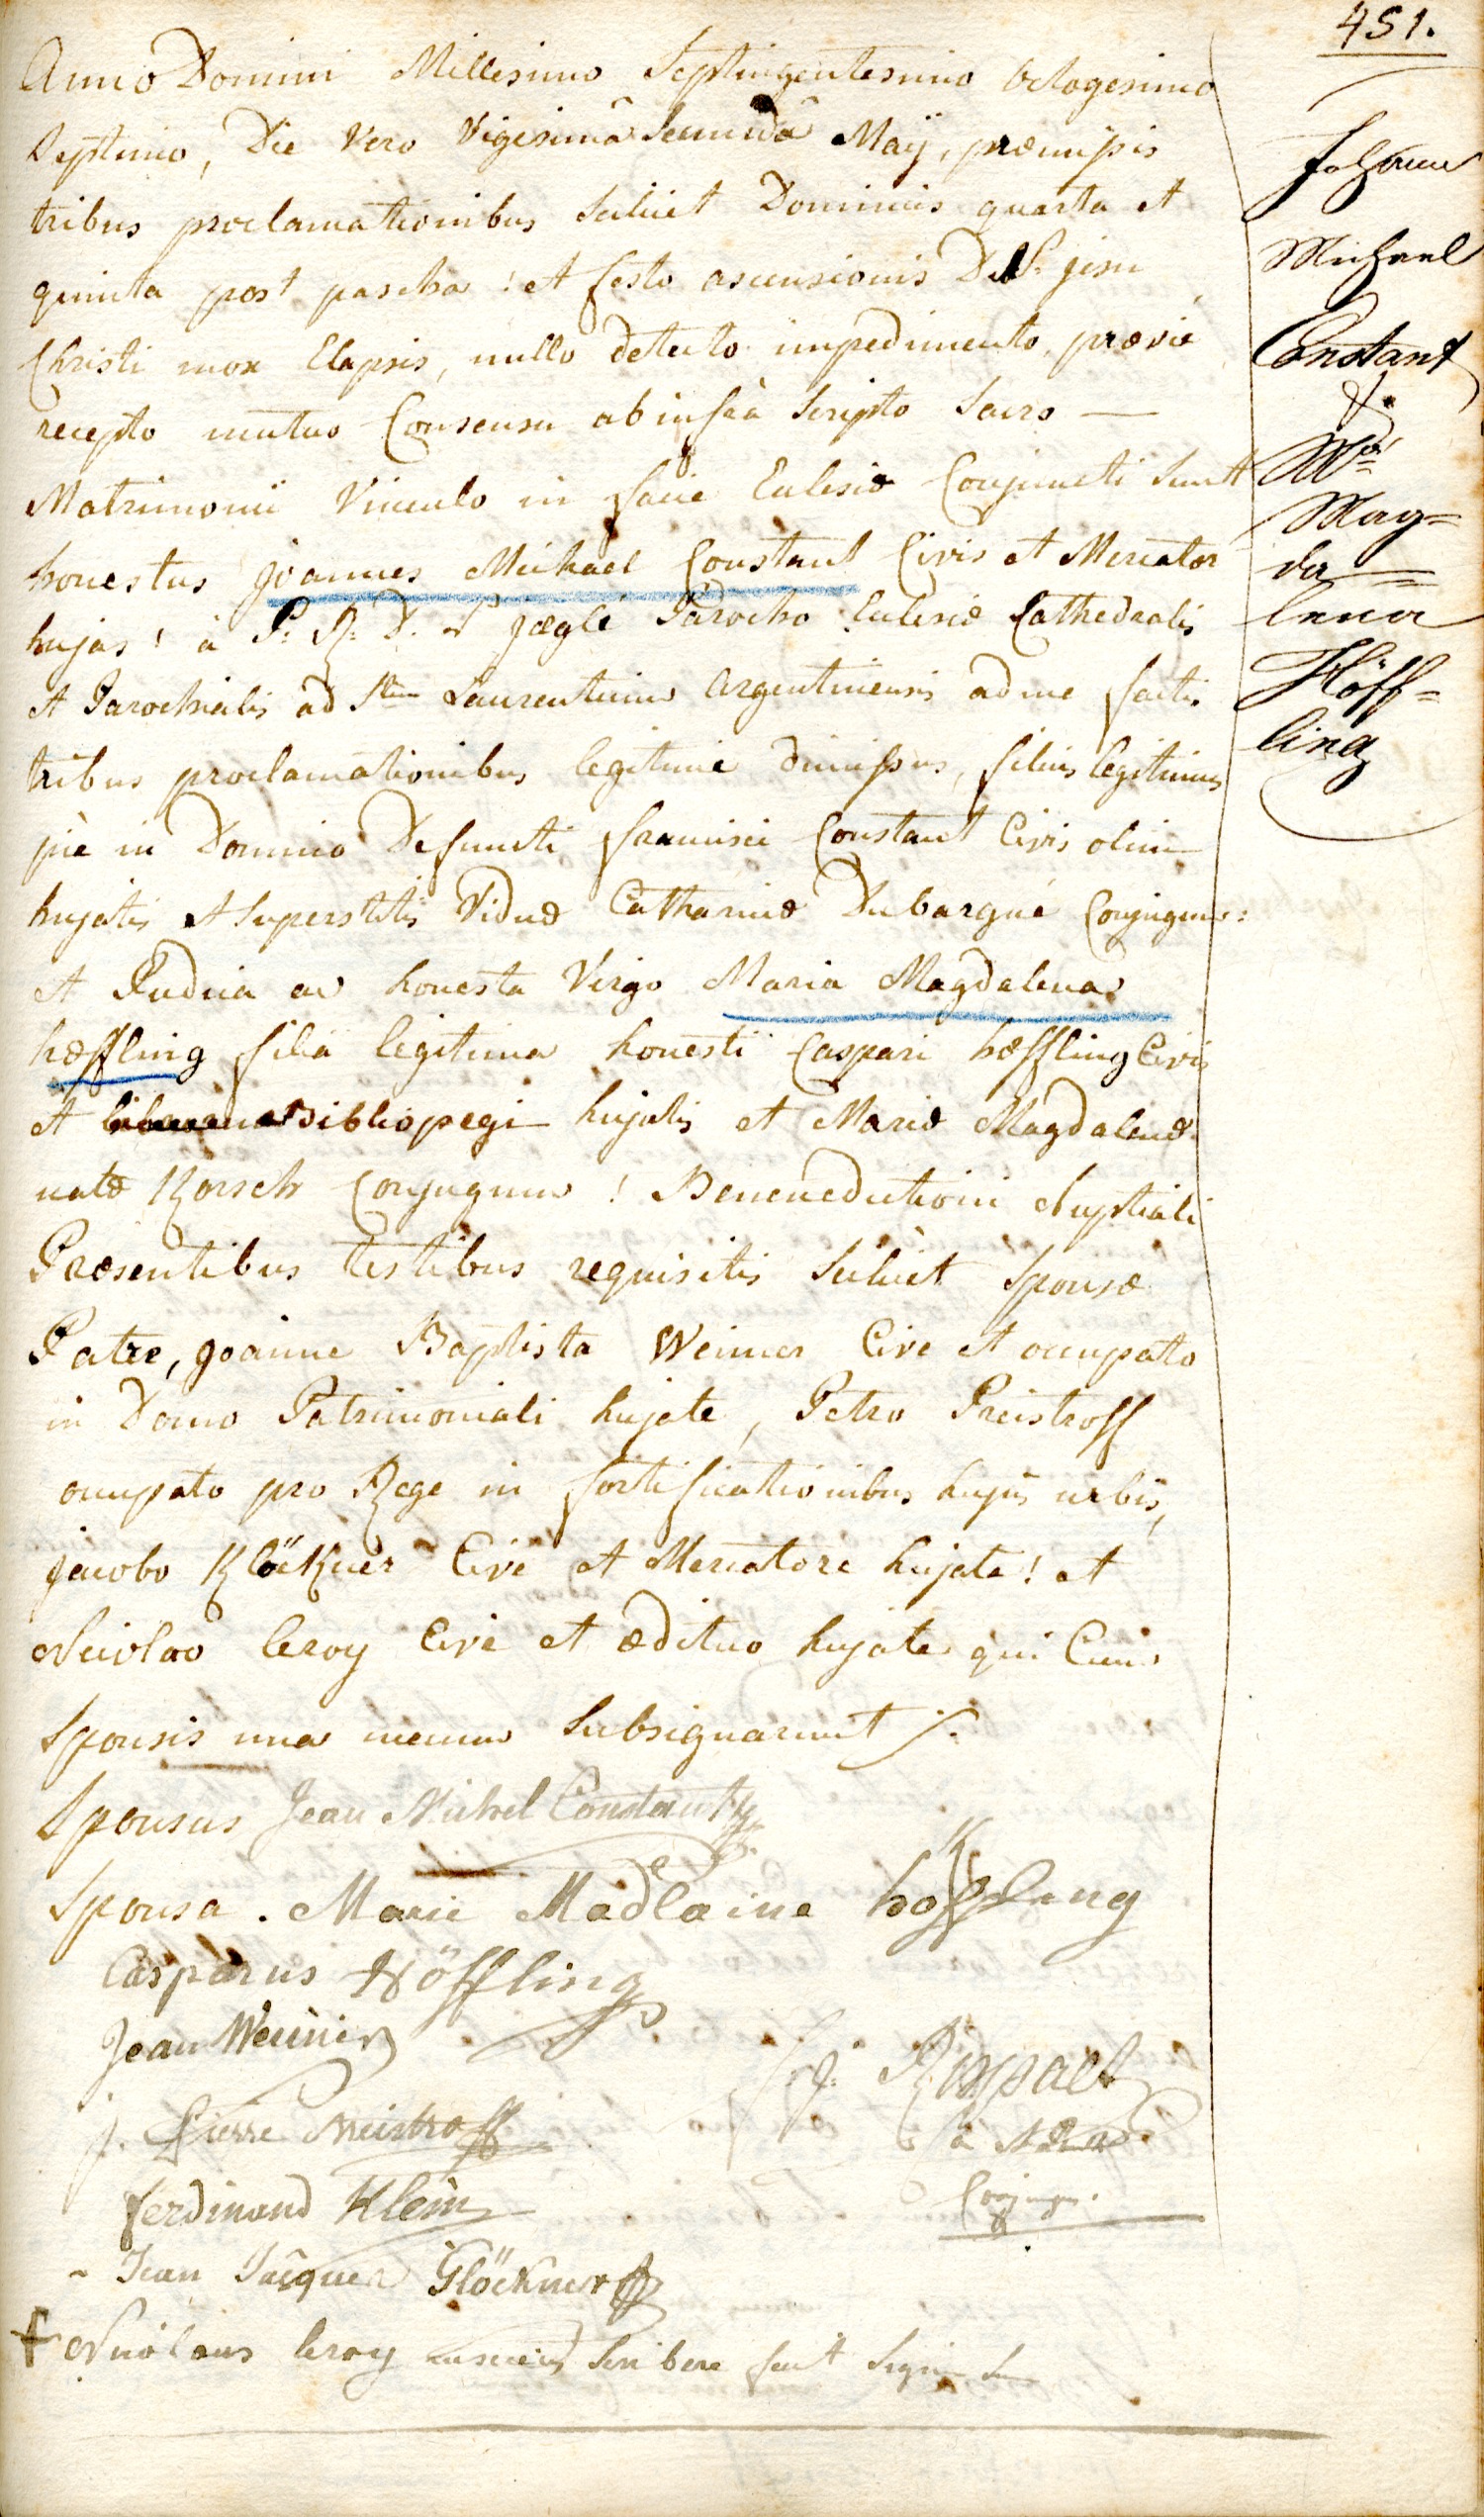 451.
Anno Domini Millesimo Septingentesimo octogesimo
Septimo, Die Vero Vigesimâ Secundâ Maÿ, præmissis
tribus proclamationibus scilicet Dominicis quarta et
quinta post pascha ! et festo ascensionis D. N. jesu
Christi mox Elapsis, nullo detecto impedimento, prævie
recepto mutuo Consensu ab infra Scripto Sacro —
Matrimonii Vinculo in facie Eclesiæ Conjuncti Sunt
honestus joannes Michael Constant Civis et Mercator
hujas ! à P: R: D. D jæglé Parocho Eclesiæ Cathedralis
et Parochialis ad Stum Laurentium argentinensis ad me factis
tribus proclamationibus legitimè dimissus, filius legitimus
piè in Domino Defuncti francisci Constant Civis olim
hujatis et Superstitis Viduæ Catharinæ Dubargué Conjugum:
et Pudica ac honesta Virgo Maria Magdalena
hœffling filia legitima honesti Caspari hœffling Civis
et bibliopegi hujatis et Mariæ Magdalenæ
natæ Korsch Conjugum ! Benenedictioni Nuptiali
Præsentibus testibus requisitis Scilicet Sponsæ
Patre, joanne Baptista Weinner Cive et occupato
in Domo Patrimoniali hujate, Petro Preistroff
occupato pro Rege in fortificationibus hujus urbis,
jacobo Klöckner Cive et Mercatore hujate ! et
Nicolao leroy Cive et ædituo hujate qui Cum
Sponsis una mecum Subsignarunt ./.
Sponsus Jean Michel Constant
Sponsa . Marie Madlaine höffling
Casparus Höffling
Jean Weinner
J. Pierre Preistroff
Ferdinand Klein
Jean Jacques Glöckner
+ Nicolaus leroy nescius Scribere fecit Signum
Johann
Michael
Constant
&.
Ma
Mag=
da=
lena
Höff=
ling